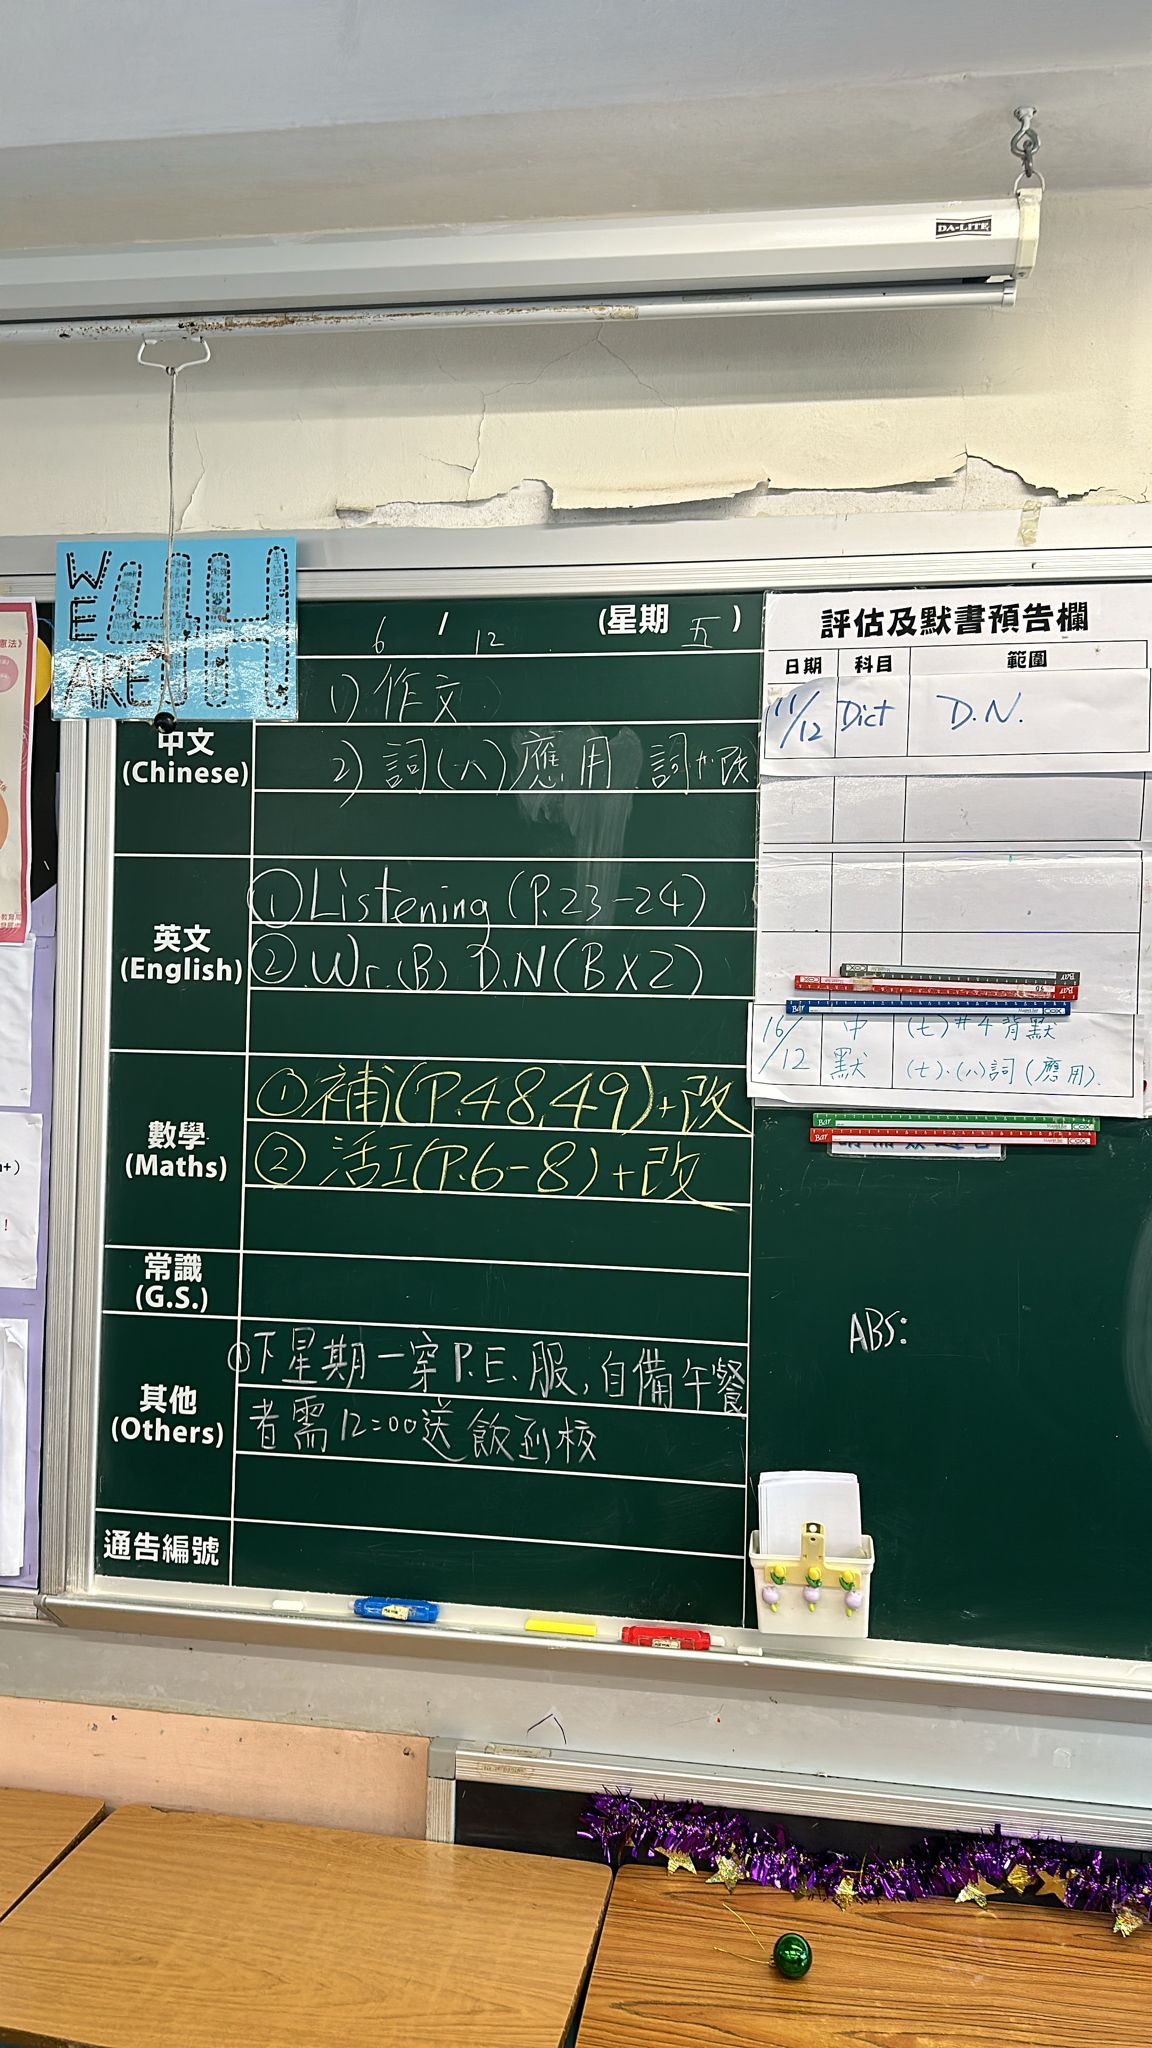 DA-LITE
WE
ARE
4H
6 / 12 (星期 五 )
中文
(Chinese)
1) 作文
2) 詞(八)應用 詞+改
英文
(English)
① Listening (P.23-24)
② Wr.(B) D.N(BX2)
數學
(Maths)
① 補(P.48,49)+改
② 活工(P.6-8)+改
常識
(G.S.)
其他
(Others)
①下星期一穿P.E.服,自備午餐
者需12:00送飯到校
通告編號
評估及默書預告欄
日期 科目 範圍
11/12 Dict D.N.
16/12 中默 (七)#4背默
(七)、(八)詞(應用).
ABS: